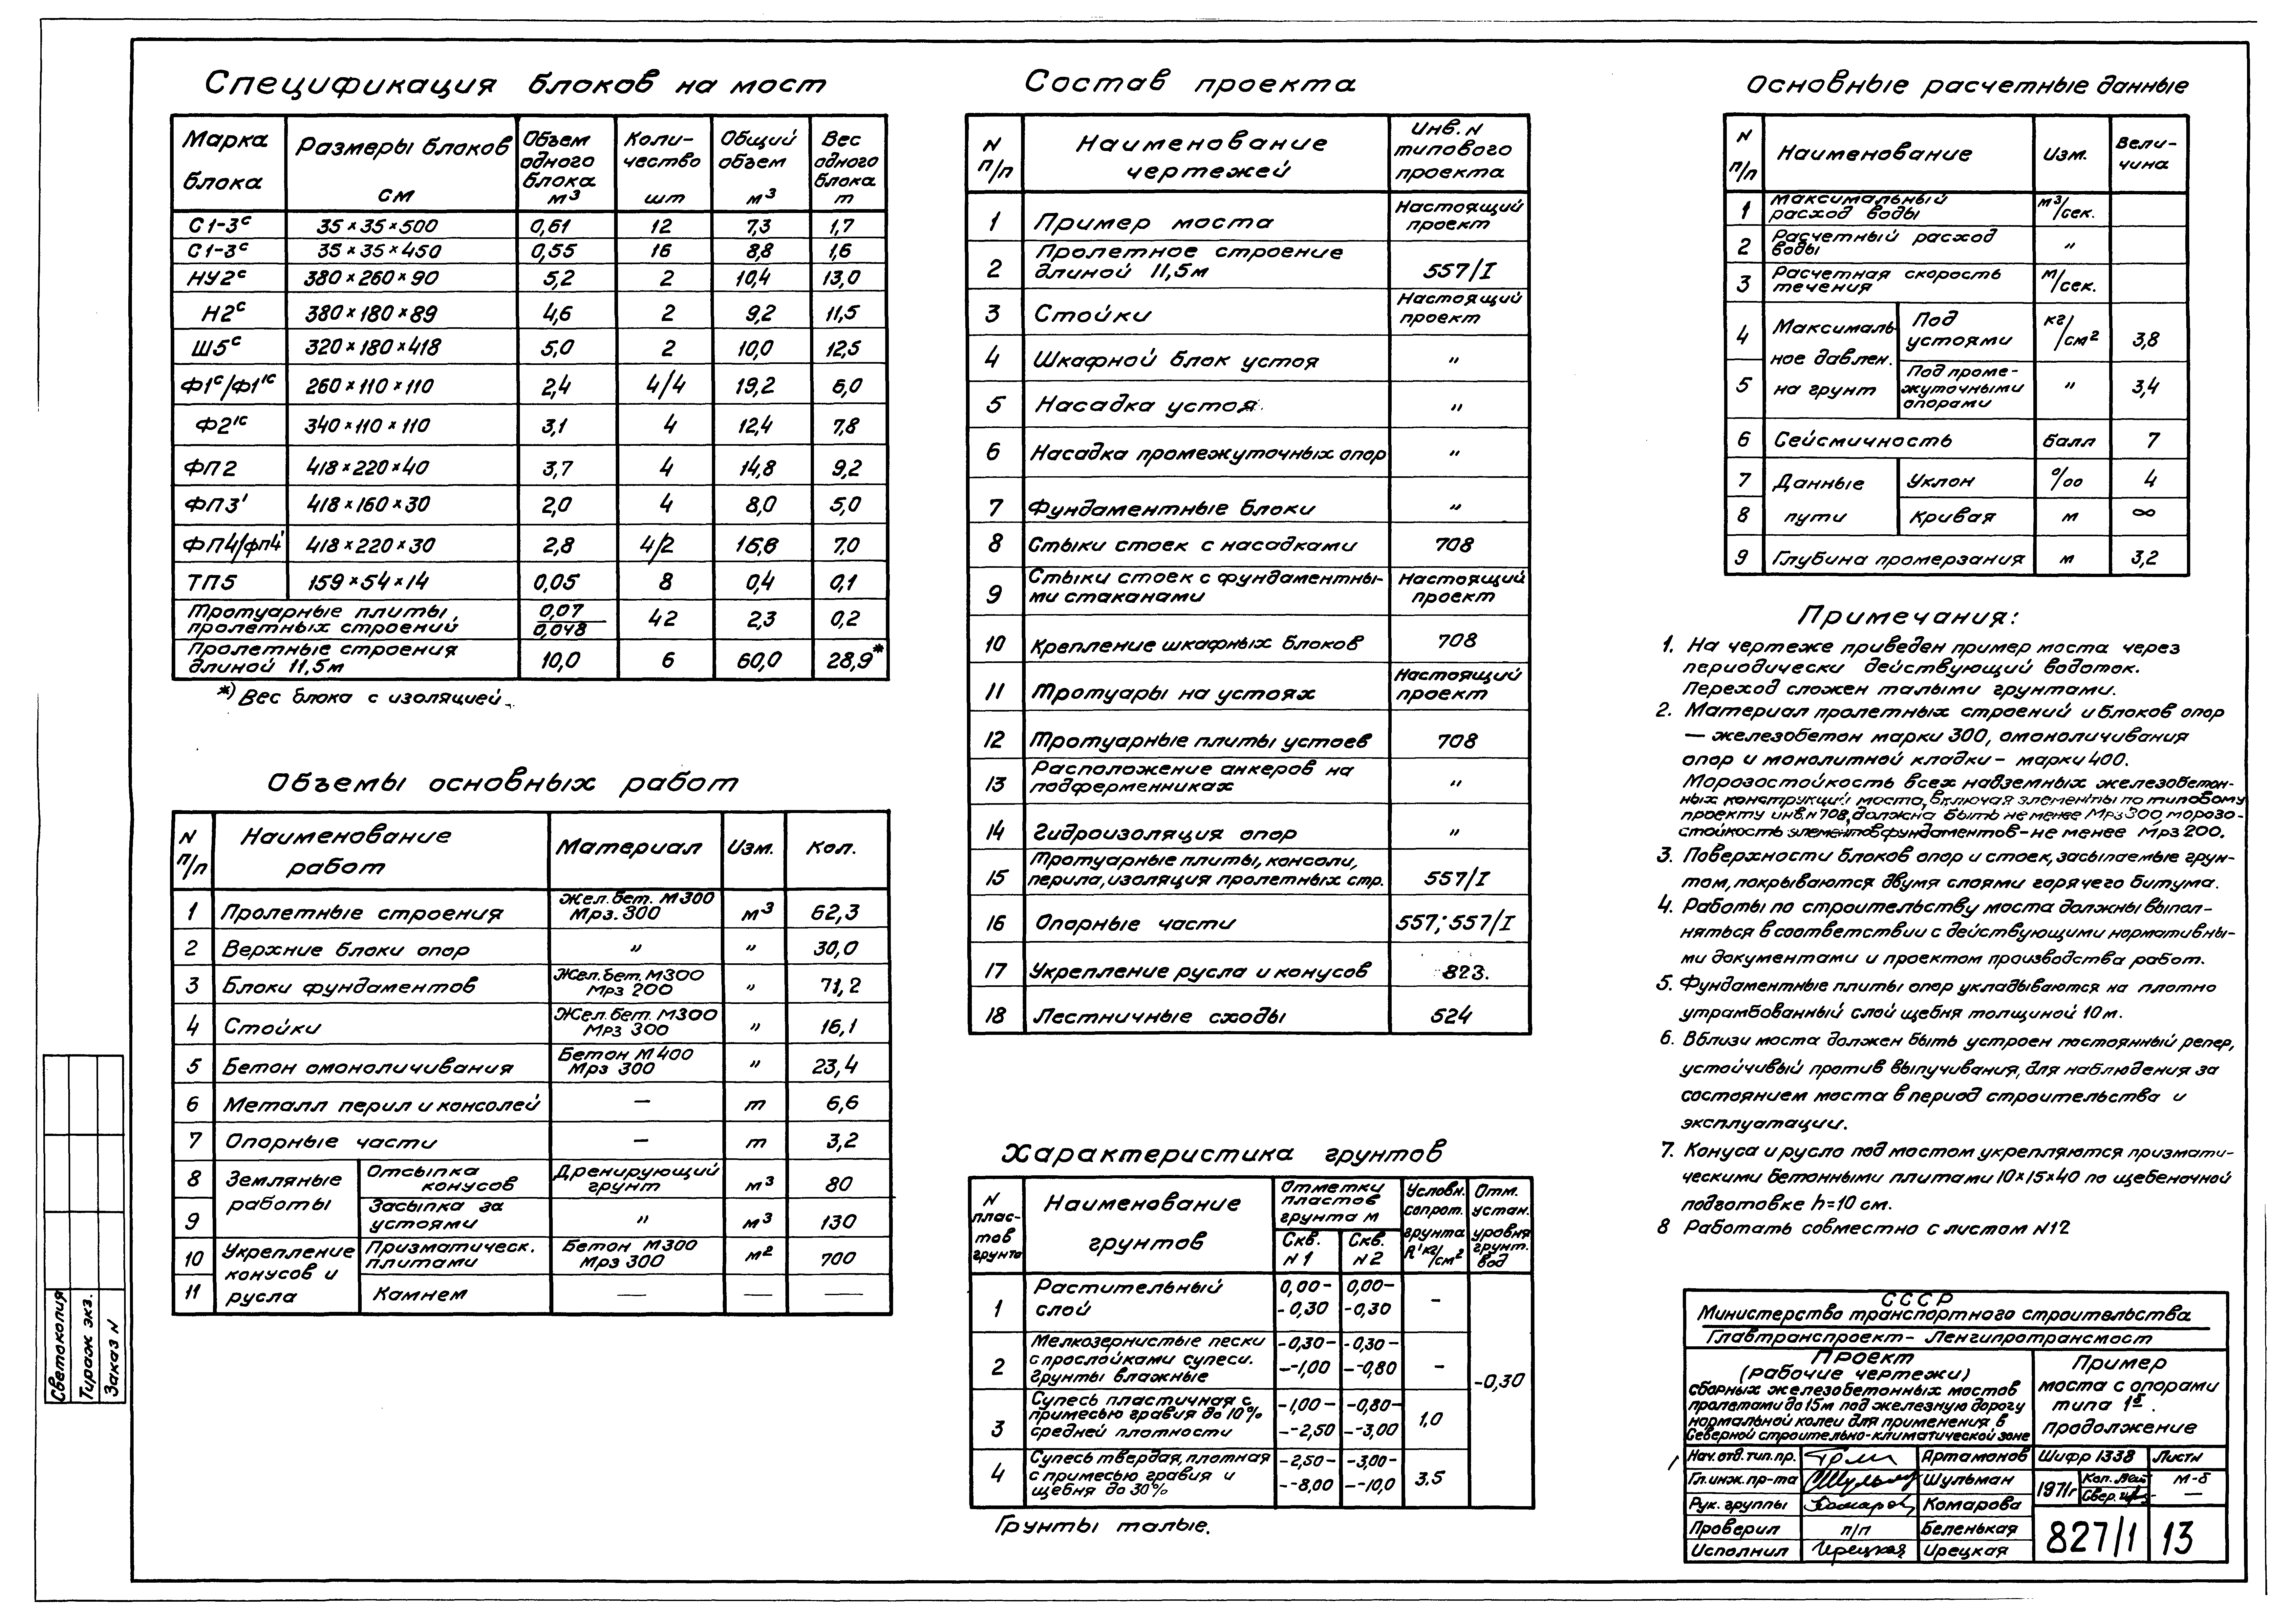 Спецификация блоков на мост
Марка блока | Размеры блоков см | Объем одного блока м³ | Коли-чество шт | Общий объем м³ | Вес одного блока т
С1-3ᶜ | 35×35×500 | 0,61 | 12 | 7,3 | 1,7
С1-3ᶜ | 35×35×450 | 0,55 | 16 | 8,8 | 1,6
НУ2ᶜ | 380×260×90 | 5,2 | 2 | 10,4 | 13,0
Н2ᶜ | 380×180×89 | 4,6 | 2 | 9,2 | 11,5
Ш5ᶜ | 320×180×418 | 5,0 | 2 | 10,0 | 12,5
Ф1ᶜ/Ф1'ᶜ | 260×110×110 | 2,4 | 4/4 | 19,2 | 6,0
Ф2'ᶜ | 340×110×110 | 3,1 | 4 | 12,4 | 7,8
ФП2 | 418×220×40 | 3,7 | 4 | 14,8 | 9,2
ФП3' | 418×160×30 | 2,0 | 4 | 8,0 | 5,0
ФП4/ФП4' | 418×220×30 | 2,8 | 4/2 | 16,8 | 7,0
ТП5 | 159×54×14 | 0,05 | 8 | 0,4 | 0,1
Тротуарные плиты, пролетных строений | 0,07/0,048 | 42 | 2,3 | 0,2
Пролетные строения длиной 11,5м | 10,0 | 6 | 60,0 | 28,9*
*) Вес блока с изоляцией.
Объемы основных работ
N п/п | Наименование работ | Материал | Изм. | Кол.
1 | Пролетные строения | Жел.бет. М300 Мрз.300 | м³ | 62,3
2 | Верхние блоки опор | " | " | 30,0
3 | Блоки фундаментов | Жел.бет. М300 Мрз 200 | " | 71,2
4 | Стойки | Жел.бет. М300 Мрз 300 | " | 16,1
5 | Бетон омоноличивания | Бетон М400 Мрз 300 | " | 23,4
6 | Металл перил и консолей | — | т | 6,6
7 | Опорные части | — | т | 3,2
8 | Земляные работы | Отсыпка конусов | Дренирующий грунт | м³ | 80
9 | Засыпка за устоями | " | м³ | 130
10 | Укрепление конусов и русла | Призматическ. плитами | Бетон М300 Мрз 300 | м² | 700
11 | Камнем | — | — | —
Состав проекта
N п/п | Наименование чертежей | Инв. N типового проекта
1 | Пример моста | Настоящий проект
2 | Пролетное строение длиной 11,5м | 557/I
3 | Стойки | Настоящий проект
4 | Шкафной блок устоя | "
5 | Насадка устоя. | "
6 | Насадка промежуточных опор | "
7 | Фундаментные блоки | "
8 | Стыки стоек с насадками | 708
9 | Стыки стоек с фундаментны-ми стаканами | Настоящий проект
10 | Крепление шкафных блоков | 708
11 | Тротуары на устоях | Настоящий проект
12 | Тротуарные плиты устоев | 708
13 | Расположение анкеров на подферменниках | "
14 | Гидроизоляция опор | "
15 | Тротуарные плиты, консоли, перила, изоляция пролетных стр. | 557/I
16 | Опорные части | 557; 557/I
17 | Укрепление русла и конусов | 823.
18 | Лестничные сходы | 524
Характеристика грунтов
N плас-тов грунта | Наименование грунтов | Отметки пластов грунта м | Скв. N1 | Скв. N2 | Условн. сопрот. грунта R' кг/см² | Отм. устан. уровня грунт. вод
1 | Растительный слой | 0,00- -0,30 | 0,00- -0,30 | – | -0,30
2 | Мелкозернистые пески с прослойками супеси. грунты влажные | -0,30- --1,00 | -0,30- --0,80 | –
3 | Супесь пластичная с примесью гравия до 10% средней плотности | -1,00- --2,50 | -0,80- --3,00 | 1,0
4 | Супесь твердая, плотная с примесью гравия и щебня до 30% | -2,50- --8,00 | -3,00- --10,0 | 3.5
Грунты талые.
Основные расчетные данные
N п/п | Наименование | Изм. | Вели-чина
1 | Максимальный расход воды | м³/сек.
2 | Расчетный расход воды | "
3 | Расчетная скорость течения | м/сек.
4 | Максималь-ное давлен. на грунт | Под устоями | кг/см² | 3,8
5 | Под проме-жуточными опорами | " | 3,4
6 | Сейсмичность | балл | 7
7 | Данные пути | Уклон | ‰ | 4
8 | Кривая | м | ∞
9 | Глубина промерзания | м | 3,2
Примечания:
1. На чертеже приведен пример моста через
периодически действующий водоток.
Переход сложен талыми грунтами.
2. Материал пролетных строений и блоков опор
— железобетон марки 300, омоноличивания
опор и монолитной кладки – марки 400.
Морозостойкость всех надземных железобетон-
ных конструкций моста, включая элементы по типовому
проекту инв.N 708, должна быть не менее Мрз 300, морозо-
стойкость элементов фундаментов – не менее Мрз 200.
3. Поверхности блоков опор и стоек, засыпаемые грун-
том, покрываются двумя слоями горячего битума.
4. Работы по строительству моста должны выпол-
няться в соответствии с действующими нормативны-
ми документами и проектом производства работ.
5. Фундаментные плиты опор укладываются на плотно
утрамбованный слой щебня толщиной 10 м.
6. Вблизи моста должен быть устроен постоянный репер,
устойчивый против выпучивания, для наблюдения за
состоянием моста в период строительства и
эксплуатации.
7. Конуса и русло под мостом укрепляются призмати-
ческими бетонными плитами 10×15×40 по щебеночной
подготовке h=10 см.
8 Работать совместно с листом N12
СССР
Министерство транспортного строительства
Главтранспроект – Ленгипротрансмост
Проект
(рабочие чертежи)
сборных железобетонных мостов
пролетами до 15м под железную дорогу
нормальной колеи для применения в
Северной строительно-климатической зоне
Пример
моста с опорами
типа 1ᵟ.
Продолжение
Нач.отд.тип.пр. | Артамонов | Шифр 1338 | Листы
Гл.инж.пр-та | Шульман | 1971г | Коп. | М-б
Рук. группы | Комарова | Свер. | —
Проверил | п/п | Беленькая | 827/1 | 13
Исполнил | Ирецкая | Ирецкая
Светокопия
Тираж экз.
Заказ N